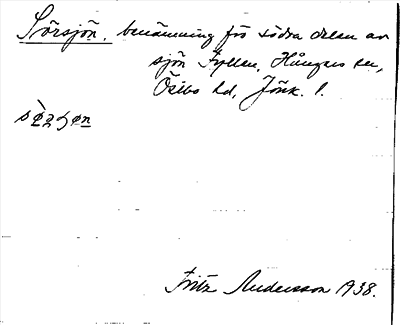 Sörsjön, benämning för södra delen av
sjön Fyllen, Hångers sn,
Östbo hd, Jönk. l.
Fritz Andersson 1938.